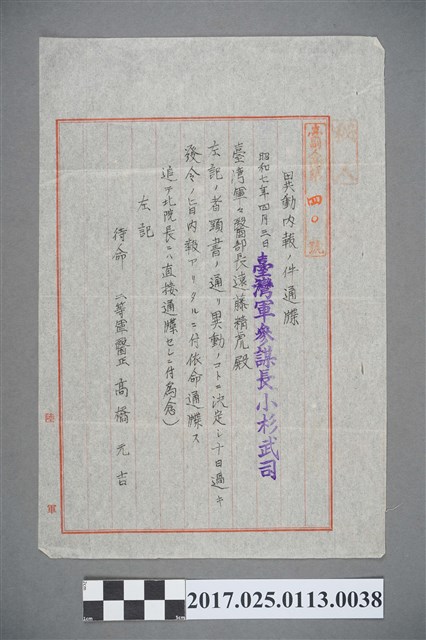 異動內報ノ件通牒
昭和七年四月三日
臺灣軍參謀長小杉武司
臺湾軍々醫部長遠藤精虎殿
左記ノ者頭書ノ通リ異動ノコトニ決定シ十日過キ
發令ノ旨內報アリタルニ付依命通牒ス
追テ北院長ニハ直接通牒セシニ付為念)
左記
待命 二等軍醫正 髙橋元吉
四〇號
陸軍
2017.025.0113.0038
1cm
5cm